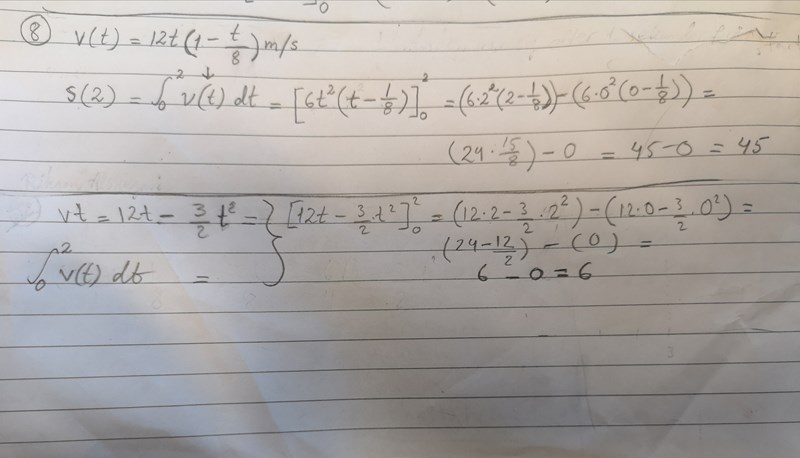 ⑧ v(t) = 12t(1 - t/8) m/s
s(2) = ∫₀² v(t) dt = [6t²(t - 1/8)]₀² = (6·2²(2 - 1/8)) - (6·0²(0 - 1/8)) =
(24 · 15/8) - 0 = 45 - 0 = 45
vt = 12t - 3/2 t² = } [12t - 3/2 t²]₀² = (12·2 - 3/2 · 2²) - (12·0 - 3/2 · 0²) =
(24 - 12/2) - (0) =
∫₀² v(t) dt =
6 - 0 = 6